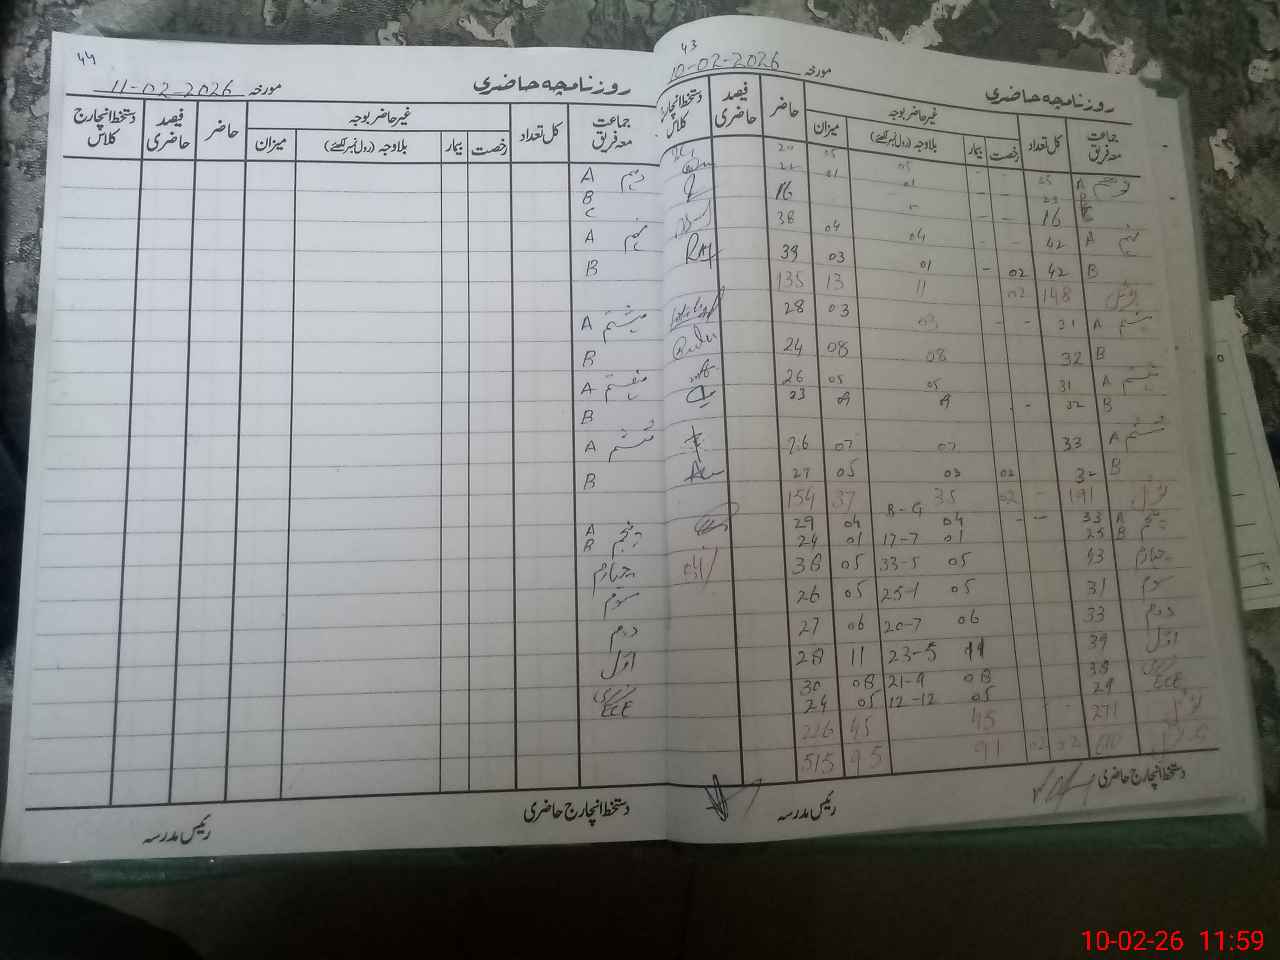 43
روزنامچہ حاضری مورخہ 10-02-2026
جماعت معہ فریق کل تعداد غیر حاضر بوجہ حاضر فیصد حاضری دستخط انچارج کلاس
رخصت بیمار بلاوجہ (رول نمبر لکھیے) میزان
دہم A 25 - - 05 05 20
B 23 - - 01 01 22
C 16 - - - 16
نہم A 42 - - 04 04 38
B 42 02 - 01 03 39
ٹوٹل 148 02 11 13 135
ہشتم A 31 - - 03 03 28
B 32 08 08 24
ہفتم A 31 05 05 26
B 32 - - 09 09 23
ششم A 33 07 07 26
B 32 02 03 05 27
ٹوٹل 191 - 02 35 37 154
B-G
پنجم A 33 - - 04 04 29
B 25 01 17-7 01 24
چہارم 43 05 33-5 05 38
سوم 31 05 25-1 05 26
دوم 33 06 20-7 06 27
اول 39 11 23-5 11 28
نرسری 38 08 21-9 08 30
ECE 29 05 12-12 05 24
ٹوٹل 271 - - 45 45 226
610 02 02 91 95 515
دستخط انچارج حاضری رئیس مدرسہ
44
روزنامچہ حاضری مورخہ 11-02-2026
جماعت معہ فریق کل تعداد غیر حاضر بوجہ حاضر فیصد حاضری دستخط انچارج کلاس
رخصت بیمار بلاوجہ (رول نمبر لکھیے) میزان
دہم A
B
C
نہم A
B
ہشتم A
B
ہفتم A
B
ششم A
B
پنجم A
B
چہارم
سوم
دوم
اول
نرسری
ECE
دستخط انچارج حاضری رئیس مدرسہ
10-02-26 11:59